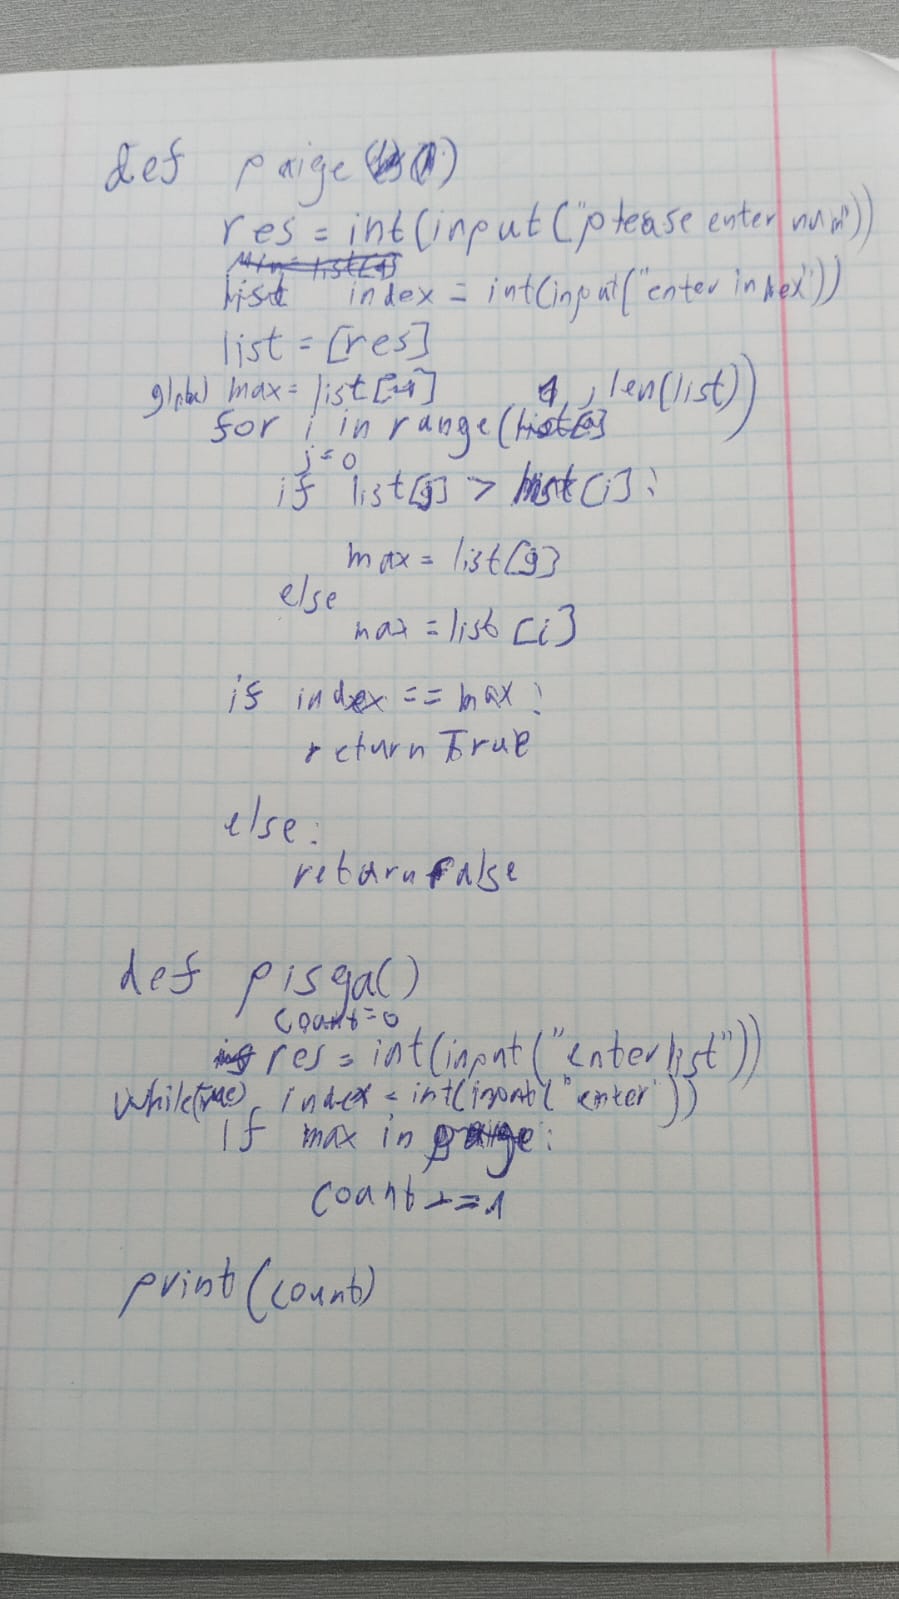 def paige()
res = int(input("please enter num"))
list index = int(input("enter index"))
list = [res]
global max = list[-1]
for i in range(1, len(list))
j=0
if list[j] > list[i]:
max = list[j]
else
max = list[i]
if index == max:
return True
else:
return False
def pisga()
count=0
res = int(input("enter list"))
while(true) index = int(input("enter"))
if max in paige:
count += 1
print(count)